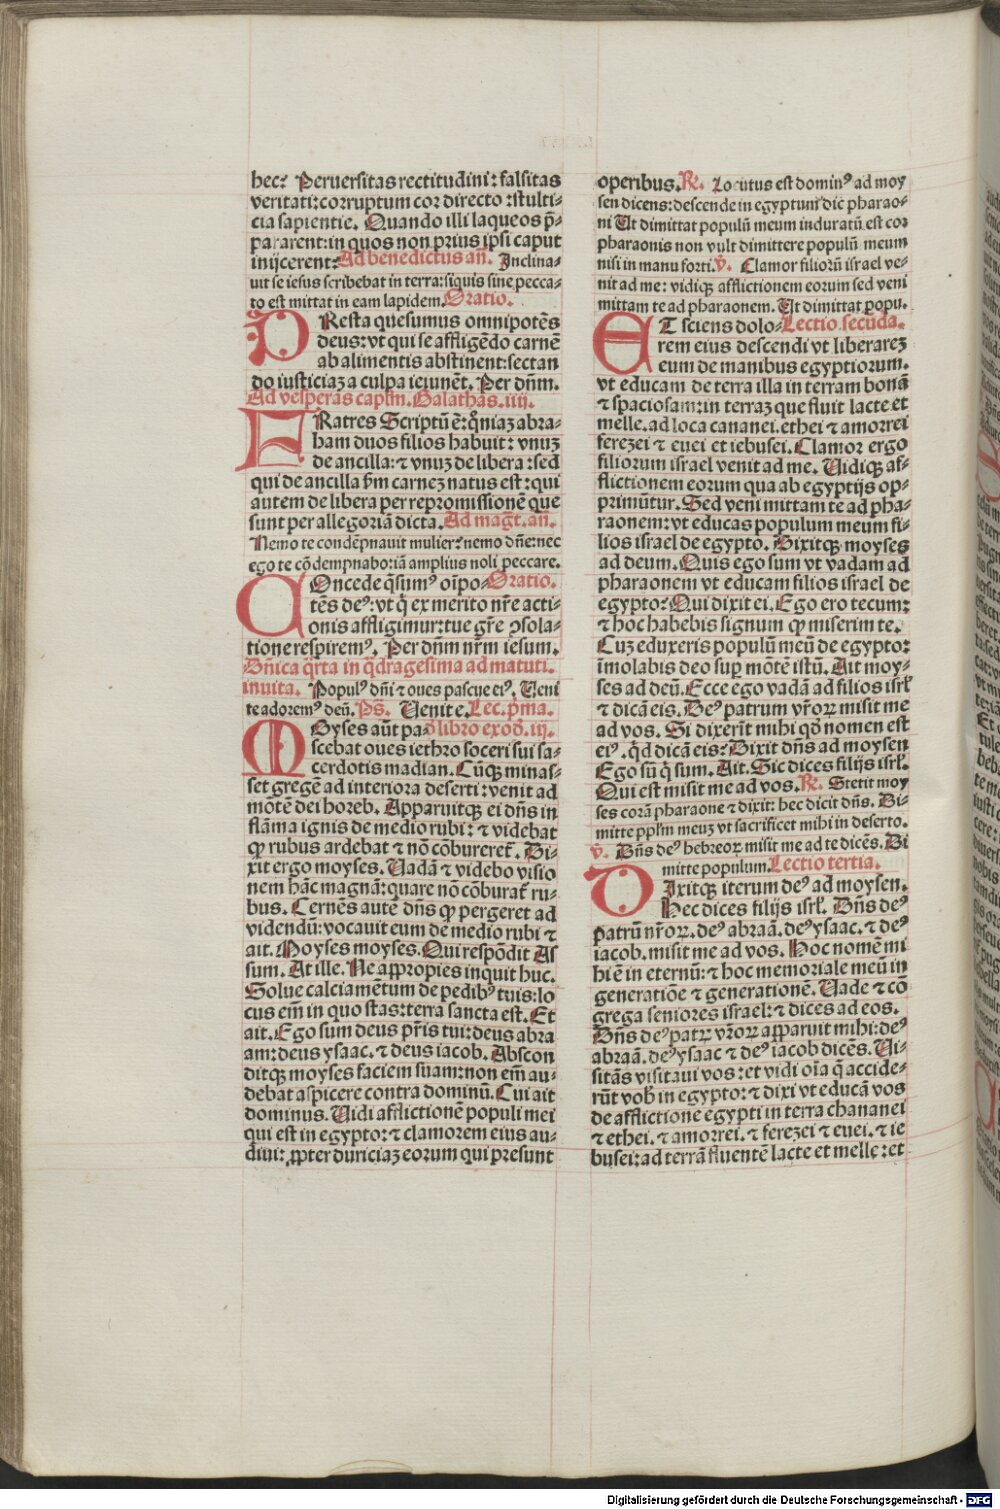 hec? Peruersitas rectitudini: falsitas
veritati: corruptum cor directo: stulti-
cia sapientie. Quando illi laqueos p̄-
pararent: in quos non prius ipsi caput
inijcerent? Ad benedictus añ. Inclina-
uit se iesus scribebat in terra: siquis sine pecca-
to est mittat in eam lapidem. Oratio.
PResta quesumus omnipotēs
deus: vt qui se affligēdo carnē
ab alimentis abstinent: sectan
do iusticiaz a culpa ieiunēt. Per dñm.
Ad vesperas capłm. Galathas. iiij.
FRatres Scriptū ē: qm̄iaz abra-
ham duos filios habuit: vnuz
de ancilla: ⁊ vnuz de libera: sed
qui de ancilla ẜm carnez natus est: qui
autem de libera per repromissionē que
sunt per allegoriā dicta. Ad mag̃t. añ.
Nemo te condēpnauit mulier? nemo dñe: nec
ego te cōdempnabo: iā amplius noli peccare.
COncede q̄sumꝰ oīpo- Oratio.
tēs deꝰ: vt q̇ ex merito nr̄e acti-
onis affligimur: tue gr̄e ↄsola-
tione respiremꝰ. Per dñm nr̄m iesum.
Dñica q̄rta in q̄dragesima ad matuti.
inuita. Populꝰ dñi ⁊ oues pascue eiꝰ. Ueni
te adoremꝰ deū. Ps̄. Uenite. Lec. p̄ma.
MOyses aūt pa- d̄ libro exod̄. iij.
scebat oues iethro soceri sui sa-
cerdotis madian. Cūqꝫ minas-
set gregē ad interiora deserti: venit ad
mōtē dei horeb. Apparuitqꝫ ei dñs in
flāma ignis de medio rubi: ⁊ videbat
ꝙ rubus ardebat ⁊ nō cōbureret̄. Di-
xit ergo moyses. Uadā ⁊ videbo visio
nem hāc magnā: quare nō cōburat̄ ru-
bus. Cernēs autē dñs ꝙ pergeret ad
videndū: vocauit eum de medio rubi ⁊
ait. Moyses moyses. Qui respōdit As
sum. At ille. Ne appropies inquit huc.
Solue calciamētum de pedibꝰ tuis: lo
cus em̄ in quo stas: terra sancta est. Et
ait. Ego sum deus pr̄is tui: deus abra
am: deus ysaac. ⁊ deus iacob. Abscon
ditqꝫ moyses faciem suam: non em̄ au-
debat aspicere contra dominū. Cui ait
dominus. Uidi afflictionē populi mei
qui est in egypto: ⁊ clamorem eius au-
diui: ꝓpter duriciaz eorum qui presunt
operibus. ℞. Locutus est dominꝰ ad moy
sen dicens: descende in egyptum dic pharao-
ni Ut dimittat populū meum induratū est cor
pharaonis non vult dimittere populū meum
nisi in manu forti. ℣. Clamor filiorū israel ve-
nit ad me: vidiqꝫ afflictionem eorum sed veni
mittam te ad pharaonem. Ut dimittat popu.
ET sciens dolo- Lectio secūda.
rem eius descendi vt liberarez
eum de manibus egyptiorum.
vt educam de terra illa in terram bonā
⁊ spaciosam: in terraz que fluit lacte et
melle. ad loca cananei. ethei ⁊ amorrei
ferezei ⁊ euei et iebusei. Clamor ergo
filiorum israel venit ad me. Uidiqꝫ af-
flictionem eorum qua ab egyptijs op-
primūtur. Sed veni mittam te ad pha-
raonem: vt educas populum meum fi-
lios israel de egypto. Dixitqꝫ moyses
ad deum. Quis ego sum vt vadam ad
pharaonem vt educam filios israel de
egypto? Qui dixit ei. Ego ero tecum:
⁊ hoc habebis signum ꝙ miserim te.
Cuz eduxeris populū meū de egypto:
īmolabis deo suꝑ mōtē istū. Ait moy-
ses ad deū. Ecce ego vadā ad filios isrł
⁊ dicā eis. Deꝰ patrum vr̄oꝝ misit me
ad vos. Si dixerīt mihi qd̄ nomen est
eiꝰ. q̇d dicā eis? Dixit dñs ad moysen
Ego sū q̇ sum. Ait. Sic dices filijs isrł.
Qui est misit me ad vos. ℞. Stetit moy
ses corā pharaone ⁊ dixit: hec dicit dñs. Di-
mitte ppłm meuz vt sacrificet mihi in deserto.
℣. Dñs deꝰ hebreoꝝ misit me ad te dicēs. Di
mitte populum. Lectio tertia.
DIxitqꝫ iterum deꝰ ad moysen.
Hec dices filijs isrł. Dñs deꝰ
patrū nr̄oꝝ. deꝰ abraā. deꝰ ysaac. ⁊ deꝰ
iacob. misit me ad vos. Hoc nomē mi
hi ē in eternū: ⁊ hoc memoriale meū in
generatiōe ⁊ generationē. Uade ⁊ cō
grega seniores israel: ⁊ dices ad eos.
Dñs deꝰ patꝝ vr̄oꝝ apparuit mihi: deꝰ
abraā. deꝰ ysaac ⁊ deꝰ iacob dicēs. Ui-
sitās visitaui vos: et vidi oīa q̄ accide-
rūt vob̄ in egypto: ⁊ dixi vt educā vos
de afflictione egypti in terra chananei
⁊ ethei. ⁊ amorrei. ⁊ ferezei ⁊ euei. ⁊ ie
busei: ad terrā fluentē lacte et melle: et
Digitalisierung gefördert durch die Deutsche Forschungsgemeinschaft - DFG